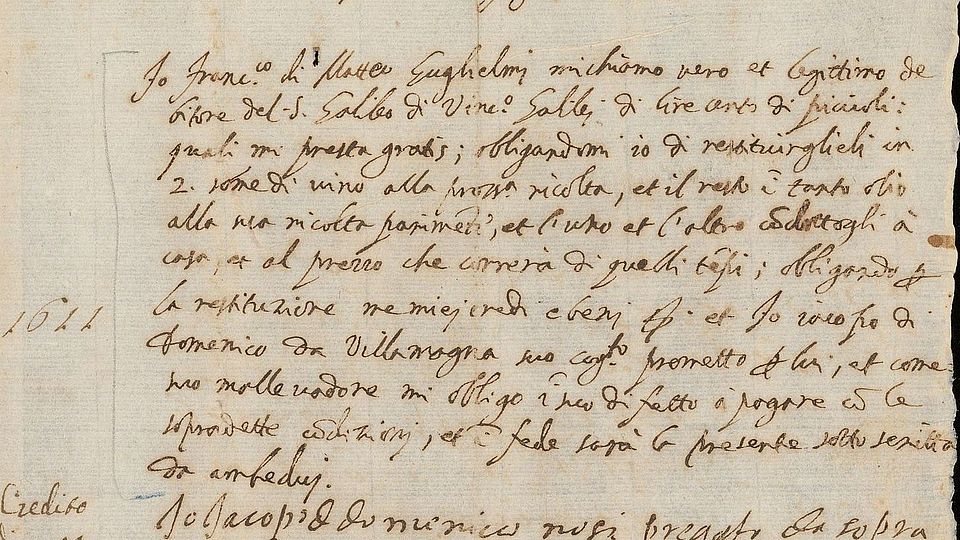 Io Franc.co di Matteo Guglielmj mi chiamo vero et legittimo de
bitore del S. Galileo di Vinc.o Galilej di lire cento di piccioli:
quali mi presta gratis; obligandomi io di restituirglieli in
2. some di vino alla pross.a ricolta, et il resto ĩ tanto olio
alla sua ricolta parimẽti, et l'uno et l'altro cõdottogli à
casa, et al prezzo che correrà di quelli tẽpi; obligando
la restituzione me miej eredi e benj et Io iacopo di
Domenico da Villamagna suo cog.to prometto lui, et come
suo mallevadore mi obligo ĩ suo difetto à pagare cõ le
sopradette cõdizionj, et ĩ fede sarà la presente sotto scritta
da ambeduj.
1611
Credito
Io Jacopo d domenico pregato da sopra